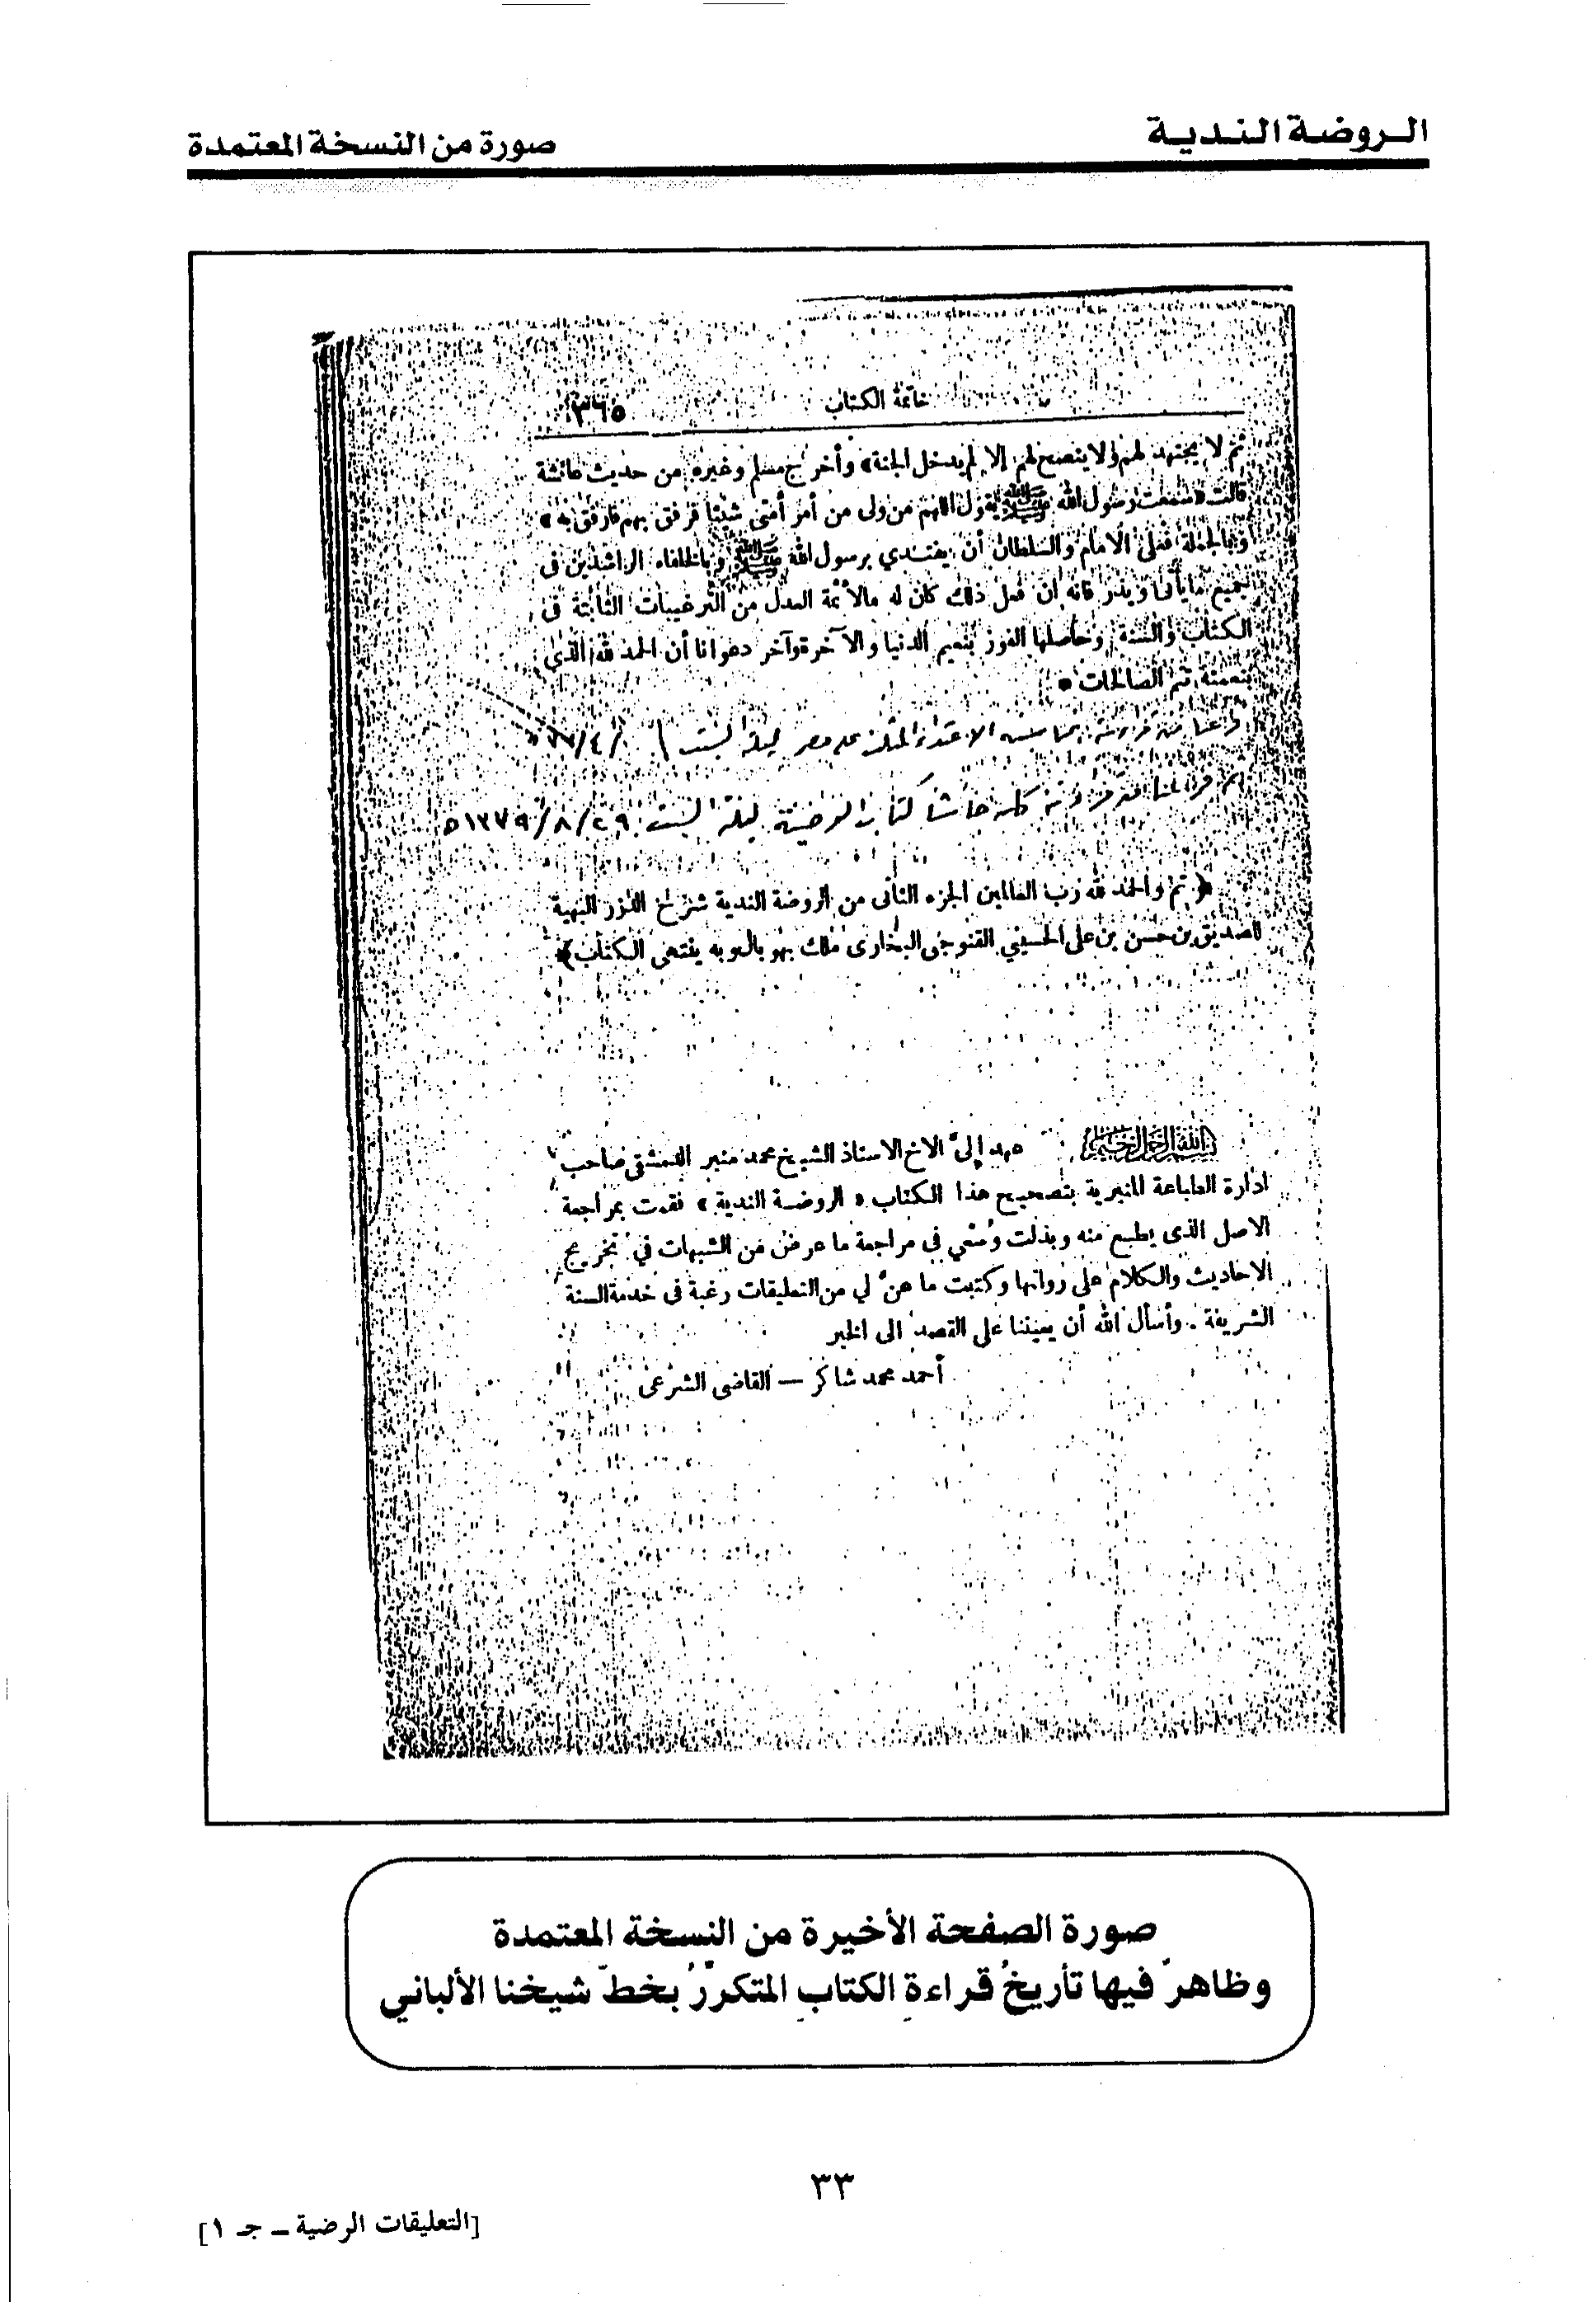 الروضة الندية
صورة من النسخة المعتمدة
خاتمة الكتاب
٣٦٥
ثم لا يجتهد لهم ولا ينصح لهم إلا لم يدخل الجنة» وأخرج مسلم وغيره من حديث عائشة
قالت «سمعت رسول الله ﷺ يقول اللهم من ولى من أمر أمتى شيئا فرفق بهم فارفق به»
وبالجملة فعلى الامام والسلطان أن يقتدي برسول الله ﷺ وبالخلفاء الراشدين فى
جميع ما يأتى ويذر فانه ان فعل ذلك كان له ما لأئمة العدل من الترغيبات الثابتة فى
الكتاب والسنة وحاصلها الفوز بنعيم الدنيا والآخرة وآخر دعوانا أن الحمد لله الذي
بنعمته تتم الصالحات *
فرغنا من قراءته الاعتداء على مصر ليلة السبت
ثم فرغنا من قراءته كله حاشا كتاب ليلة السبت ٢٩/٨/١٣٧٩ه
﴿تم والحمد لله رب العالمين الجزء الثانى من الروضة الندية شرح الدرر البهية
لصديق بن حسن بن على الحسيني القنوجى البخارى ملك بهوبال وبه ينتهى الكتاب﴾
بسم الله الرحمن الرحيم عهد إلىّ الاخ الاستاذ الشيخ محمد منير الدمشقى صاحب
ادارة الطباعة المنيرية بتصحيح هذا الكتاب «الروضة الندية» فقمت بمراجعة
الاصل الذى يطبع منه وبذلت وسعي فى مراجعة ما عرض من الشبهات في تخريج
الاحاديث والكلام على رواتها وكتبت ما عنّ لي من التعليقات رغبة فى خدمة السنة
الشريفة . وأسأل الله أن يعيننا على القصد الى الخير
أحمد محمد شاكر — القاضى الشرعى
صورة الصفحة الأخيرة من النسخة المعتمدة
وظاهرٌ فيها تأريخُ قراءةِ الكتابِ المتكررُ بخطّ شيخنا الألباني
٣٣
[التعليقات الرضية ـ جـ ١]